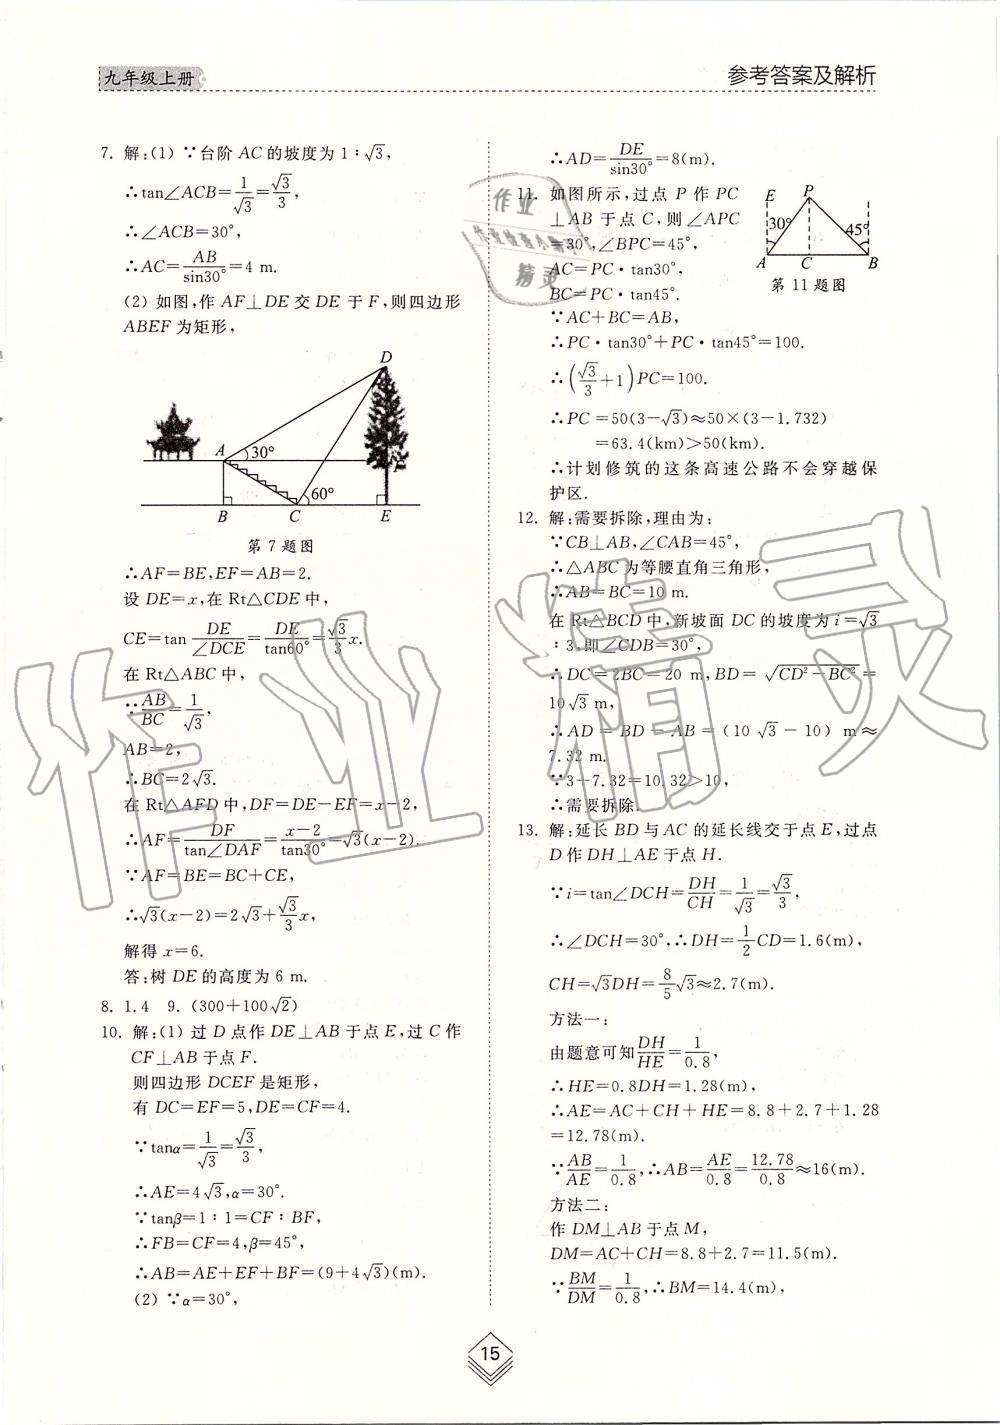 九年级上册
参考答案及解析
7. 解:(1) ∵台阶 AC 的坡度为 1∶√3,
∴tan∠ACB=1/√3=√3/3,
∴∠ACB=30°,
∴AC=AB/sin30°=4 m.
(2) 如图,作 AF⊥DE 交 DE 于 F,则四边形
ABEF 为矩形,
D
A
30°
F
60°
B
C
E
第 7 题图
∴AF=BE,EF=AB=2.
设 DE=x,在 Rt△CDE 中,
CE=tan DE/∠DCE=DE/tan60°=√3/3 x.
在 Rt△ABC 中,
∵AB/BC=1/√3,
AB=2,
∴BC=2√3.
在 Rt△AFD 中,DF=DE-EF=x-2,
∴AF=DF/tan∠DAF=x-2/tan30°=√3(x-2).
∵AF=BE=BC+CE,
∴√3(x-2)=2√3+√3/3 x,
解得 x=6.
答:树 DE 的高度为 6 m.
8. 1.4 9. (300+100√2)
10. 解:(1) 过 D 点作 DE⊥AB 于点 E,过 C 作
CF⊥AB 于点 F.
则四边形 DCEF 是矩形,
有 DC=EF=5,DE=CF=4.
∵tanα=1/√3=√3/3,
∴AE=4√3,α=30°.
∵tanβ=1∶1=CF∶BF,
∴FB=CF=4,β=45°,
∴AB=AE+EF+BF=(9+4√3)(m).
(2) ∵α=30°,
∴AD=DE/sin30°=8(m).
11. 如图所示,过点 P 作 PC
⊥AB 于点 C,则∠APC
=30°,∠BPC=45°,
AC=PC·tan30°,
BC=PC·tan45°.
∵AC+BC=AB,
∴PC·tan30°+PC·tan45°=100.
∴(√3/3+1)PC=100.
∴PC=50(3-√3)≈50×(3-1.732)
=63.4(km)>50(km).
∴计划修筑的这条高速公路不会穿越保
护区.
E
P
30°
45°
A
C
B
第 11 题图
12. 解:需要拆除,理由为:
∵CB⊥AB,∠CAB=45°,
∴△ABC 为等腰直角三角形,
∴AB=BC=10 m.
在 Rt△BCD 中,新坡面 DC 的坡度为 i=√3
∶3,即∠CDB=30°,
∴DC=2BC=20 m,BD=√CD²-BC²=
10√3 m,
∴AD=BD-AB=(10√3-10) m≈
7.32 m.
∵3+7.32=10.32>10,
∴需要拆除.
13. 解:延长 BD 与 AC 的延长线交于点 E,过点
D 作 DH⊥AE 于点 H.
∵i=tan∠DCH=DH/CH=1/√3=√3/3,
∴∠DCH=30°,∴DH=1/2CD=1.6(m),
CH=√3DH=8/5√3≈2.7(m).
方法一:
由题意可知DH/HE=1/0.8,
∴HE=0.8DH=1.28(m).
∴AE=AC+CH+HE=8.8+2.7+1.28
=12.78(m).
∵AB/AE=1/0.8,∴AB=AE/0.8=12.78/0.8≈16(m).
方法二:
作 DM⊥AB 于点 M,
DM=AC+CH=8.8+2.7=11.5(m).
∵BM/DM=1/0.8,∴BM=14.4(m),
15
作业精灵
作业
作业检查小帮手
精灵